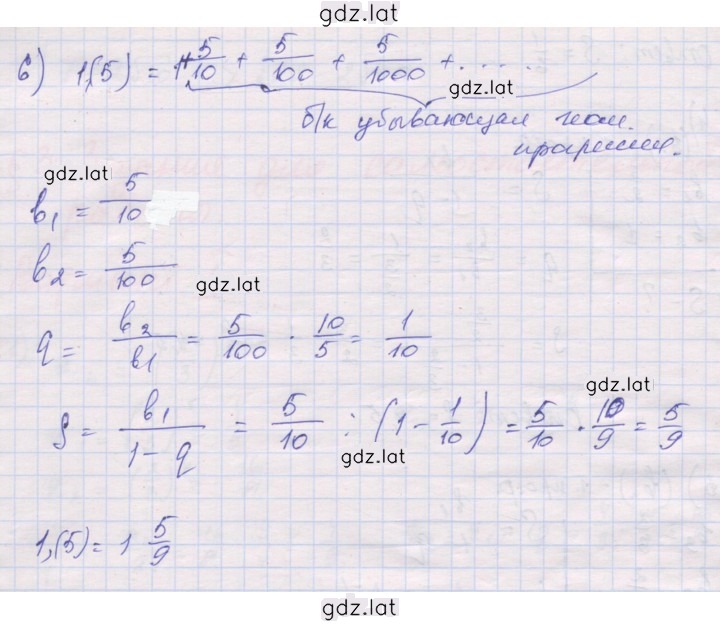 gdz.lat
б) 1,(5) = 1 + 5/10 + 5/100 + 5/1000 + .....
gdz.lat
б/к убывающая геом.
прогрессия.
gdz.lat
b₁ = 5/10
b₂ = 5/100
gdz.lat
q = b₂/b₁ = 5/100 · 10/5 = 1/10
gdz.lat
S = b₁/(1 - q) = 5/10 : (1 - 1/10) = 5/10 · 10/9 = 5/9
gdz.lat
1,(5) = 1 5/9
gdz.lat